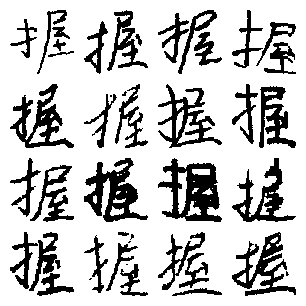 握握握握
握握握握
握握握握
握握握握